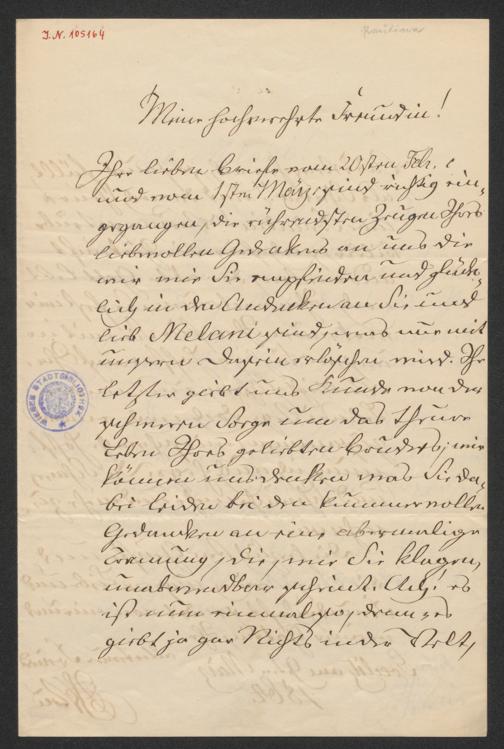 J.N. 105164
Meine hochverehrte Freundin!
Ihre lieben Briefe vom 20sten Febr.
und vom 1sten März sind richtig ein-
gegangen, die rührendsten Zeugen Ihres
liebevollen Gedenkens an uns die
wir wie Sie empfinden und glück-
lich in den Andenken an Sie und
lieb Melani sind, was nur mit
unsern Dasein erlöschen wird. Ihr
letzter giebt uns Kunde von der
schweren Sorge um das theure
Leben Ihres geliebten Bruders; wir
können uns denken was Sie da-
bei leiden bei den kummervollen
Gedanken an eine abermalige
Trennung, die, wie Sie klagen,
unabwendbar scheint. Ach! es
ist nun einmal so, denn es
giebt ja gar Nichts in der Welt,
WIENER STADTBIBLIOTHEK